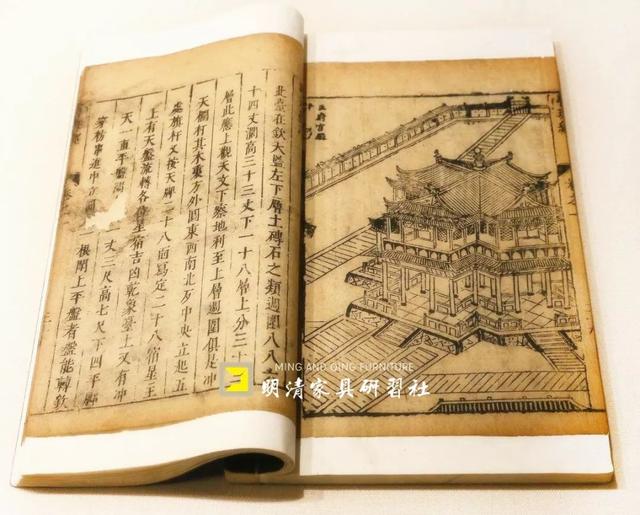 北臺在欽天監左下層土磚石之類週圍八八
十四丈濶高三十三丈下一十八層上分三十三
層此應上觀天文下察地利至上層週圍俱是冲
天欄杆其木東方外圓東西南北及中央立起五
處旗杆又按天牌二十八面寫定二十八宿星主
上有天盤流轉各位星宿吉凶乾象臺上又有冲
天一直平盤濶
一丈三尺高七尺下四平脚
穿枋串進中方圓
一根閗上平盤者盤能轉欽
王府宮殿
MING AND QING FURNITURE
明清家具研習社